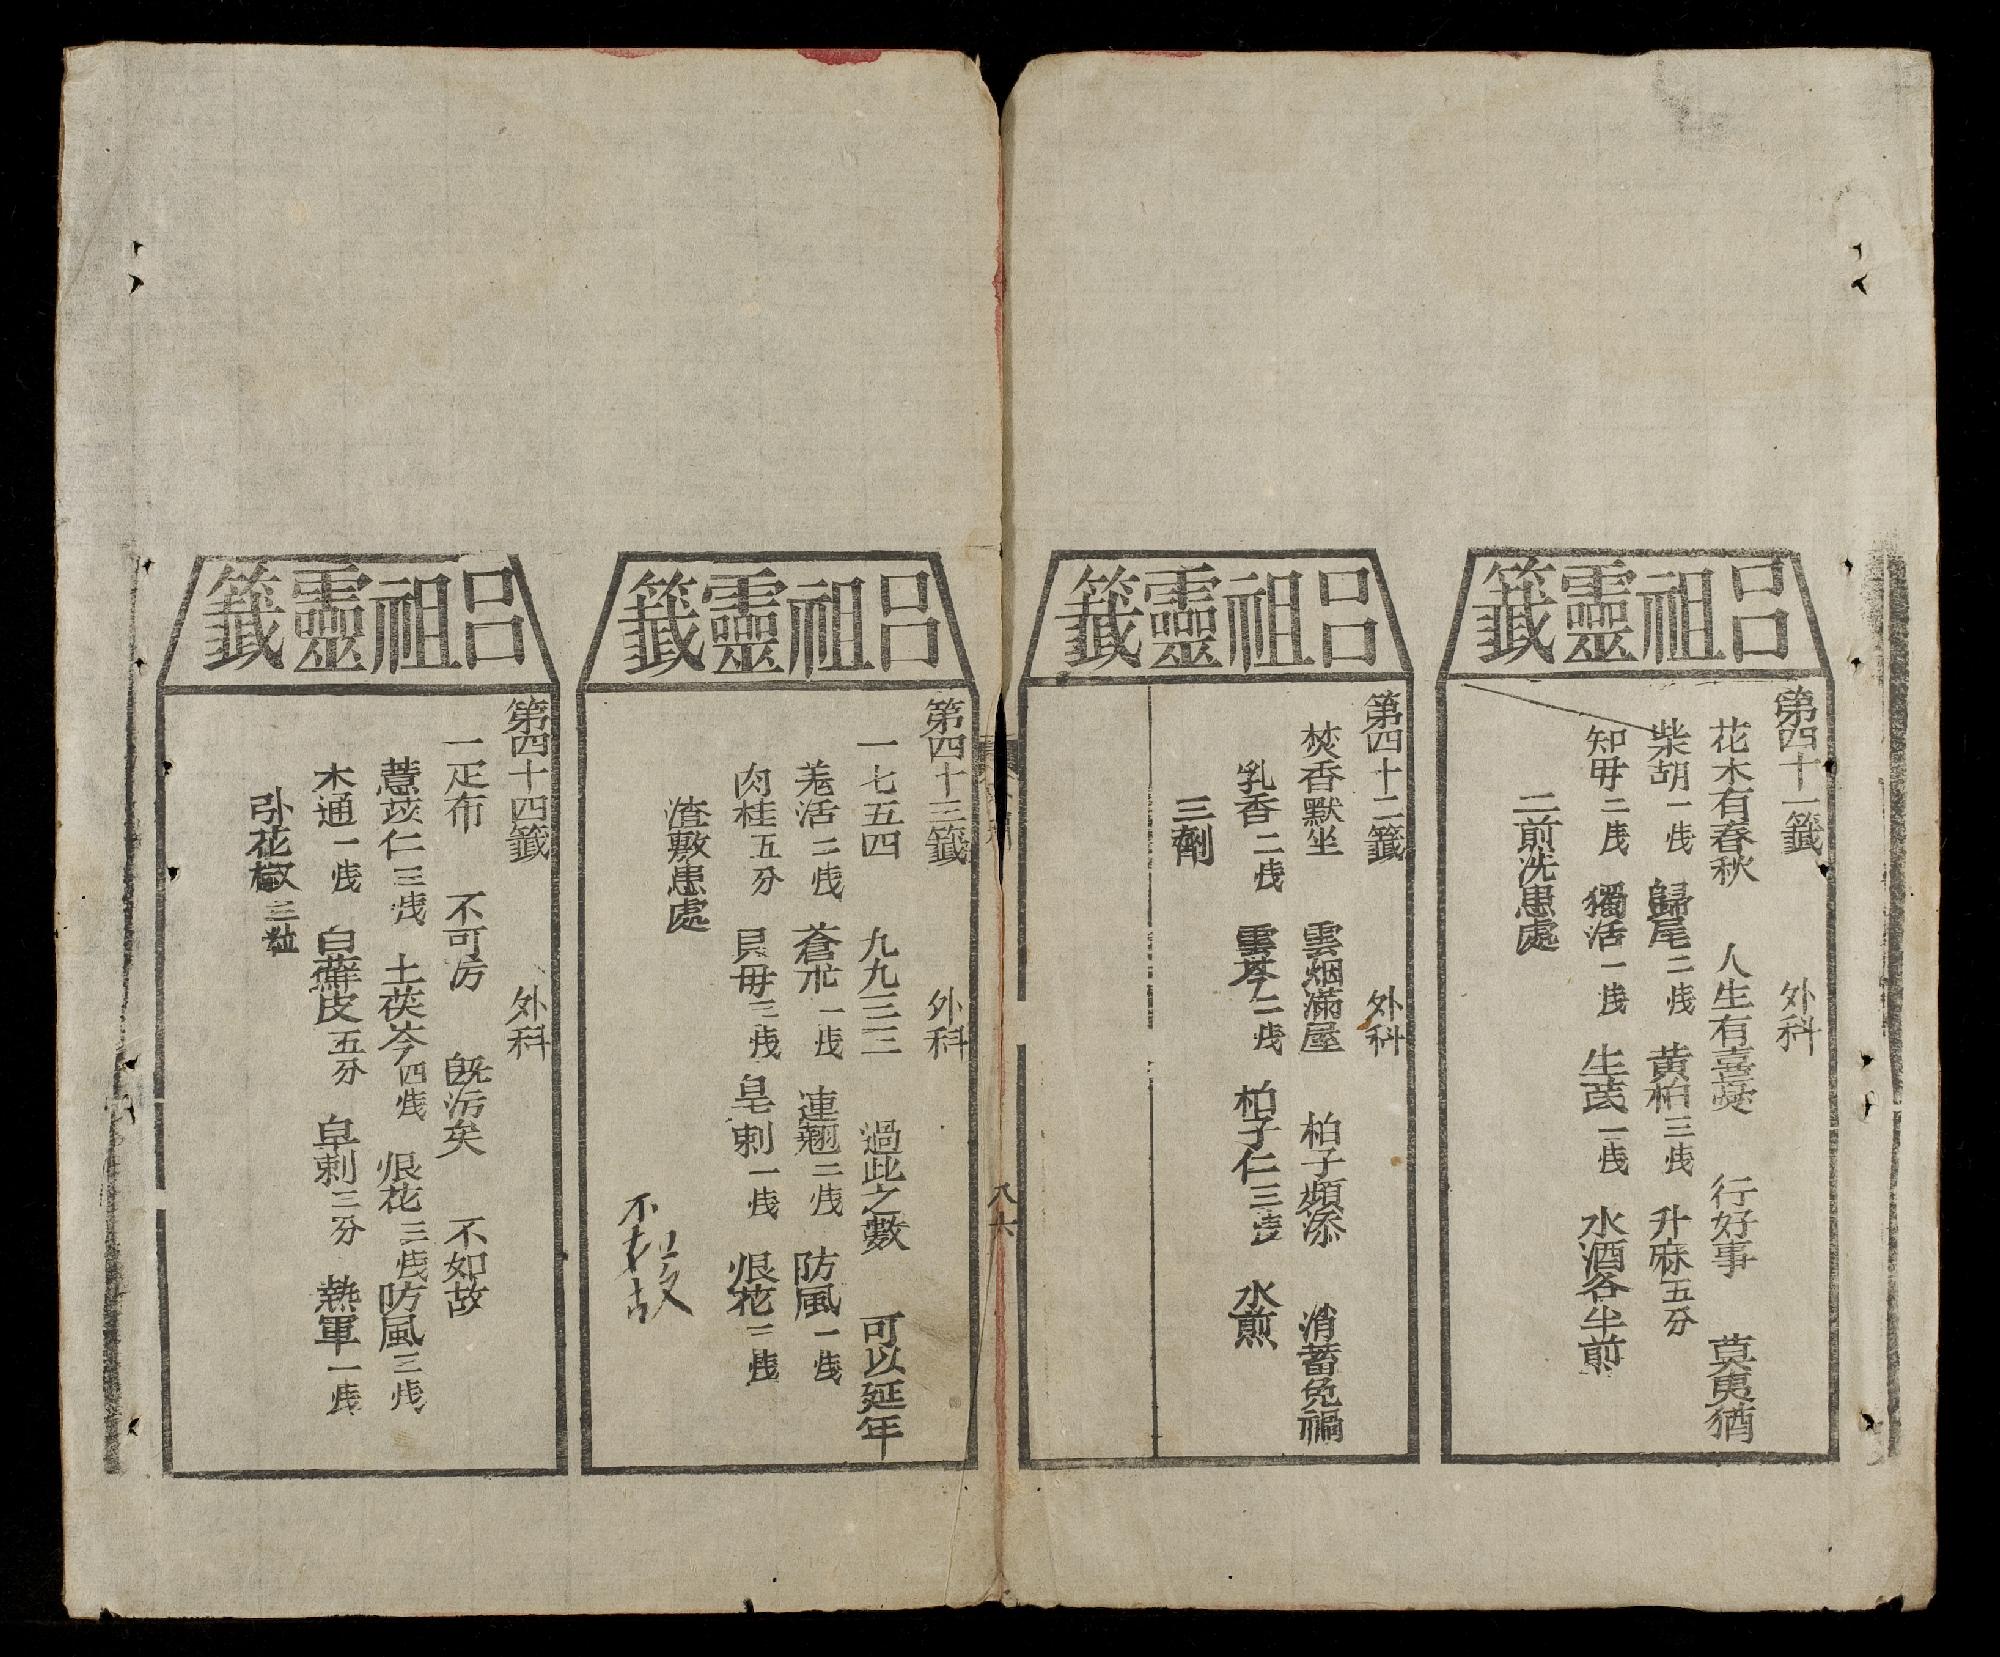 呂祖靈籤
第四十一籤 外科
花木有春秋 人生有喜憂 行好事 莫夷猶
柴胡一戋 歸尾二戋 黄柏三戋 升麻五分
知毋二戋 獨活一戋 生芪一戋 水酒各半煎
二煎洗患處
呂祖靈籤
第四十二籤 外科
焚香默坐 雲烟滿屋 柏子頻添 消蓄免禍
乳香二戋 雲苓二戋 柏子仁三戋 水煎
三劑
八十六
呂祖靈籤
第四十三籤 外科
一七五四 九九三三 過此之數 可以延年
羗活二戋 蒼朮一戋 連翹二戋 防風一戋
肉桂五分 貝毋三戋 皂刺一戋 艮花二戋
渣敷患處
呂祖靈籤
第四十四籤 外科
一疋布 不可污 旣污矣 不如故
薏苡仁三戋 土茯苓四戋 艮花三戋 防風三戋
木通一戋 白蘚皮五分 皁刺三分 熟軍一戋
引花椒三粒